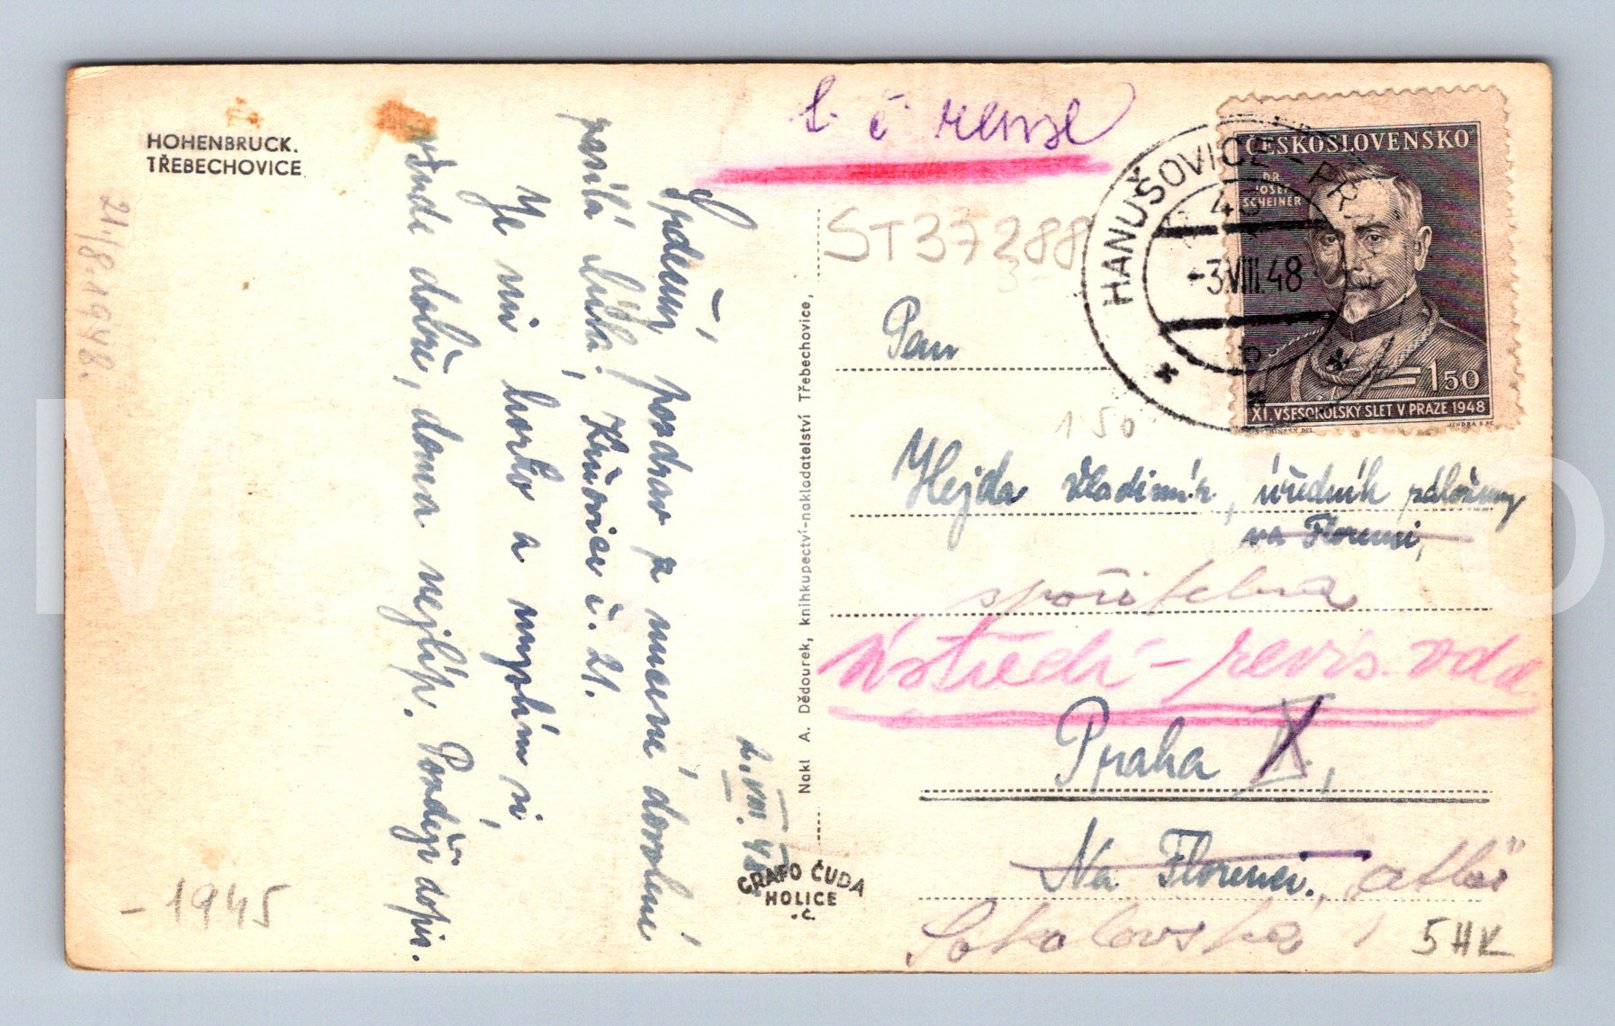 HOHENBRUCK.
TŘEBECHOVICE
21./8.1948.
2.VIII.48
Srdečný pozdrav z nucené dovolené
posílá Liďka, Křižovice č. 21.
Je mi horko a myslím si,
všude dobře, doma nejlíp. Později dopis.
- 1945
Nakl A. Dědourek, knihkupectví-nakladatelství Třebechovice,
GRAFO ČUDA
HOLICE
.č.
č revise
ST37288
3
ČESKOSLOVENSKO
DR.
JOSEF
SCHEINER
150
XI. VŠESOKOLSKÝ SLET V PRAZE 1948
HANUŠOVICE
48
-3.VIII.48
Pan
150
Hejda Vladimír, úředník záložny
na Florenci,
spořitelna
ústředí - revis. odd
Praha X.,
Na Florenci.,
Sokolovská
5 HK